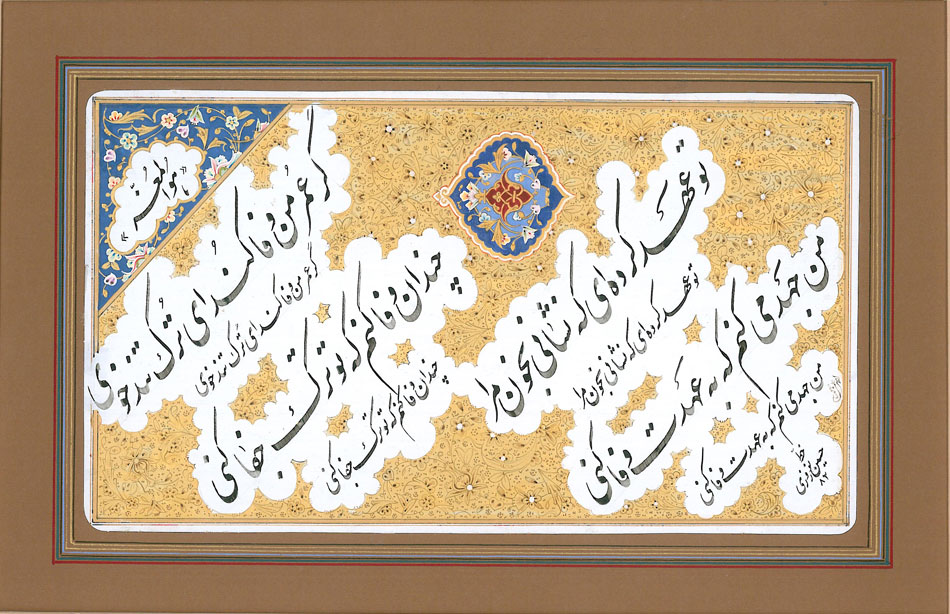 هوالمعز
تو عهد کرده‌ای که نشانی بخون مرا
تو عهد کرده‌ای که نشانی بخون مرا
من جهد می کنم که به عهدت وفا کنی
من جهد می کنم که به عهدت وفا کنی
گر عمر من وفا کند ای ترک تندخوی
گر عمر من وفا کند ای ترک تندخوی
چندان وفا کنم که تو ترک جفا کنی
چندان وفا کنم که تو ترک جفا کنی
خط
حسین